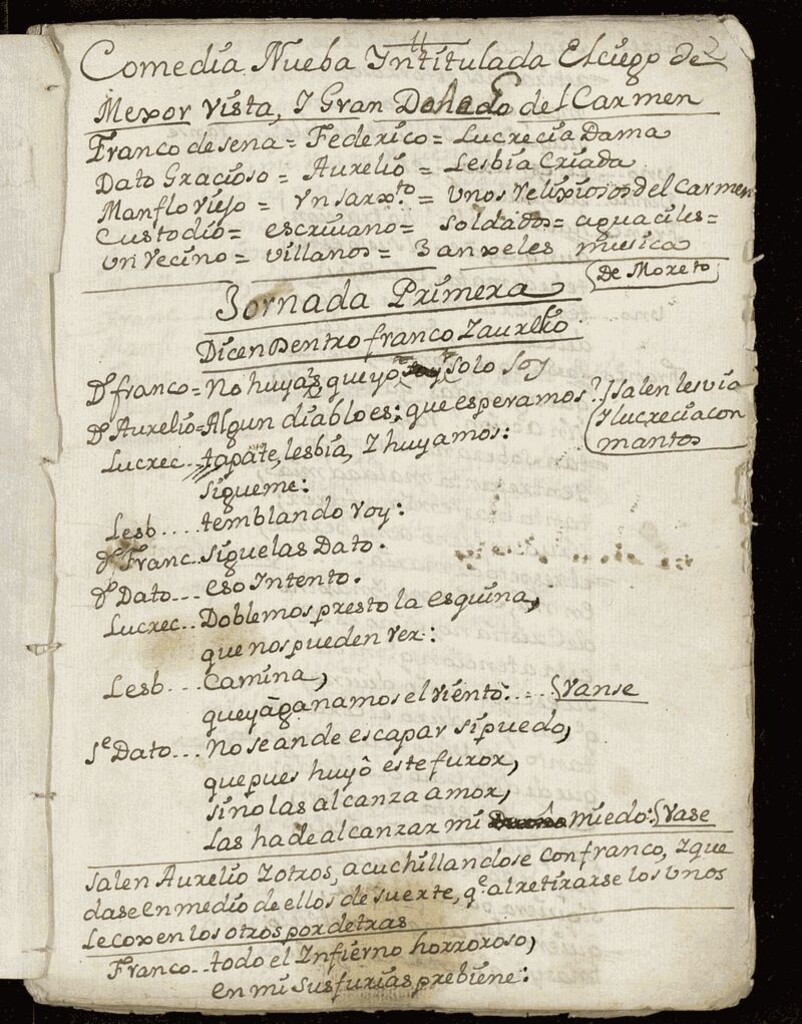 Comedia Nueba Yntitulada El ciego de
Mexor Vista, I Gran Donado del Carmen
Franco de sena = Federico = Lucrecia Dama
Dato Gracioso = Aurelio = Lesbia Criada
Manflo viejo = Vn sarxto. = Unos Relixiosos del Carmen
Custodio = escriuano = Soldados = aguaciles =
un Vecino = villanos = 3 anxeles musica
De Moreto
Jornada Primera
Dicen Dentro franco I aurelio
Dro. franco = No huyais que yo solo soy
Dro. Aurelio = Algun diablo es; que esperamos? Salen lesvia
I lucrecia con
mantos
Lucrec... tapate, lesbia, I huyamos:
sigueme:
Lesb.... temblando voy:
dro. Franc.. Siguelas Dato.
dro. Dato... eso Intento.
Lucrec.. Doblemos presto la esquina,
que nos pueden ver:
Lesb... Camina,
que yà ganamos el viento..... Vanse
Se Dato... No se an de escapar si puedo,
que pues huyô este furor,
si no las alcanza amor,
Las ha de alcanzar mi miedo: Vase
Salen Aurelio I otros, acuchillandose con franco, I que
dase en medio de ellos de suerte, qe. al retirarse los Unos
Le coxen los otros por detras
Franco.. todo el Infierno horroroso,
en mi sus furias prebiene: